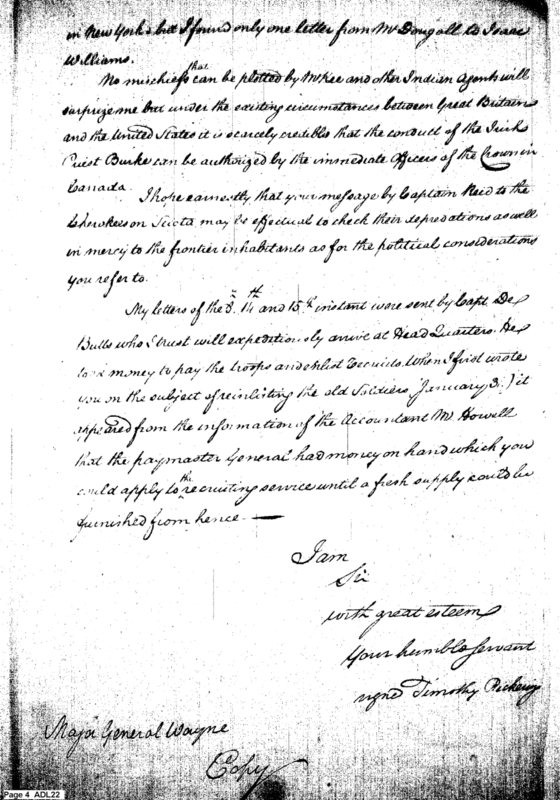 in New York: but I found only one letter from McDougall to Isaac
Williams.
No mischiefs that can be plotted by McKee and other Indian Agents will
surprize me but under the existing circumstances between Great Britain
and the United States it is scarcely credible that the conduct of the Irish
Priest Burke can be authorized by the immediate Officers of the Crown in
Canada.
I hope earnestly, that your message by Captain Reid to the
Cherokees on Sciota may be effectual to check their depredations as well
in mercy to the frontier inhabitants as for the political considerations
you refer to.
My letters of the 3d. 14th and 15th instant were sent by Capt. De
Butts who I trust will expeditiously arrive at Head Quarters. He
took money to pay the troops and enlist Recruits. When I first wrote
you on the subject of reinlisting the old Soldiers, January 3d.) it
appeared from the information of the Accountant Mr Howell
that the paymaster General had money on hand which you
could apply to the recruiting service until a fresh supply could be
furnished from hence —
I am
Sir
with great esteem
Your humble servant
signed Timothy Pickering
Major General Wayne
Copy
Page 4 ADL22